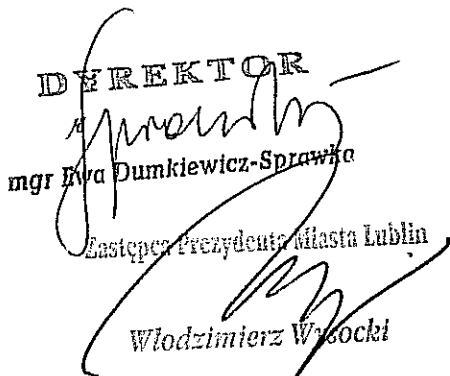 DYREKTOR
mgr Ewa Dumkiewicz-Sprawka
Zastępca Prezydenta Miasta Lublin
Włodzimierz Wysocki